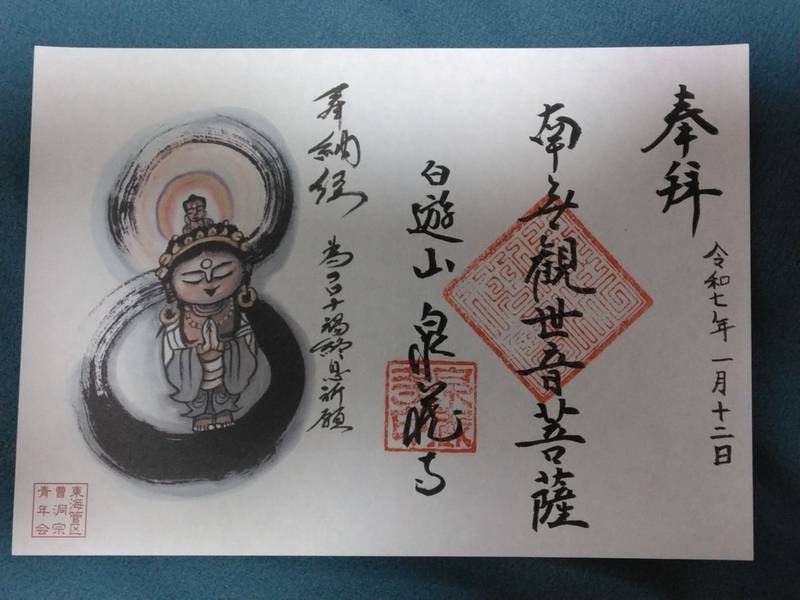 奉拝
令和七年 一月十二日
南無観世音菩薩
白遊山 泉蔵寺
奉納経
為コロナ禍終息祈願
東海管区
曹洞宗
青年会